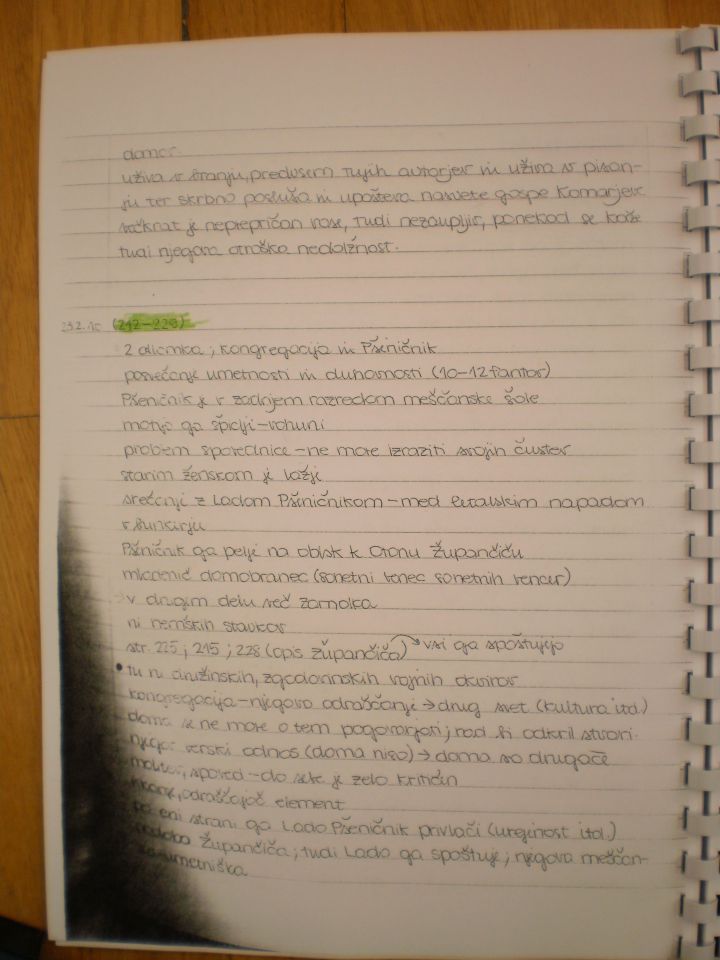 domor.
uživa v branju, predvsem tujih avtorjev in uživa v pisan-
ju ter skrbno posluša in upošteva nasvete gospe Komarjev
večkrat je neprepričan vase, tudi nezaupljiv, ponekod se kaže
tudi njegova otroška nedolžnost.
23.2.10 (212-228)
2 odlomka ; kongregacija in Pšeničnik
posvečanje umetnosti in duhovnosti (10-12 fantov)
Pšeničnik je v zadnjem razredom meščanske šole
motijo ga špiclji - vohuni
problem spovednice - ne more izraziti svojih čustev
starim ženskam je lažje
srečanje z Ladom Pšeničnikom - med letalskim napadom
v bunkerju
Pšeničnik ga pelje na obisk k Otonu Župančiču
mladenič domobranec (sonetni venec sonetnih vencev)
→ v drugem delu več zamolka
ni nemških stavkov
str. 225 ; 215 ; 228 (opis Župančiča) → vsi ga spoštujejo
• tu ni družinskih, zgodovinskih vojnih okvirov
kongregacija - njegovo odraščanje → drug svet (kultura itd.)
doma se ne more o tem pogovarjati ; rad bi odkril stvari.
njegov verski odnos (doma niso) → doma so drugače
molitev, spoved - do sebe je zelo kritičen
odraščajoč element
po eni strani ga Lado Pšeničnik privlači (urejenost itd.)
podoba Župančiča ; tudi Lado ga spoštuje ; njegova meščan-
umetniška